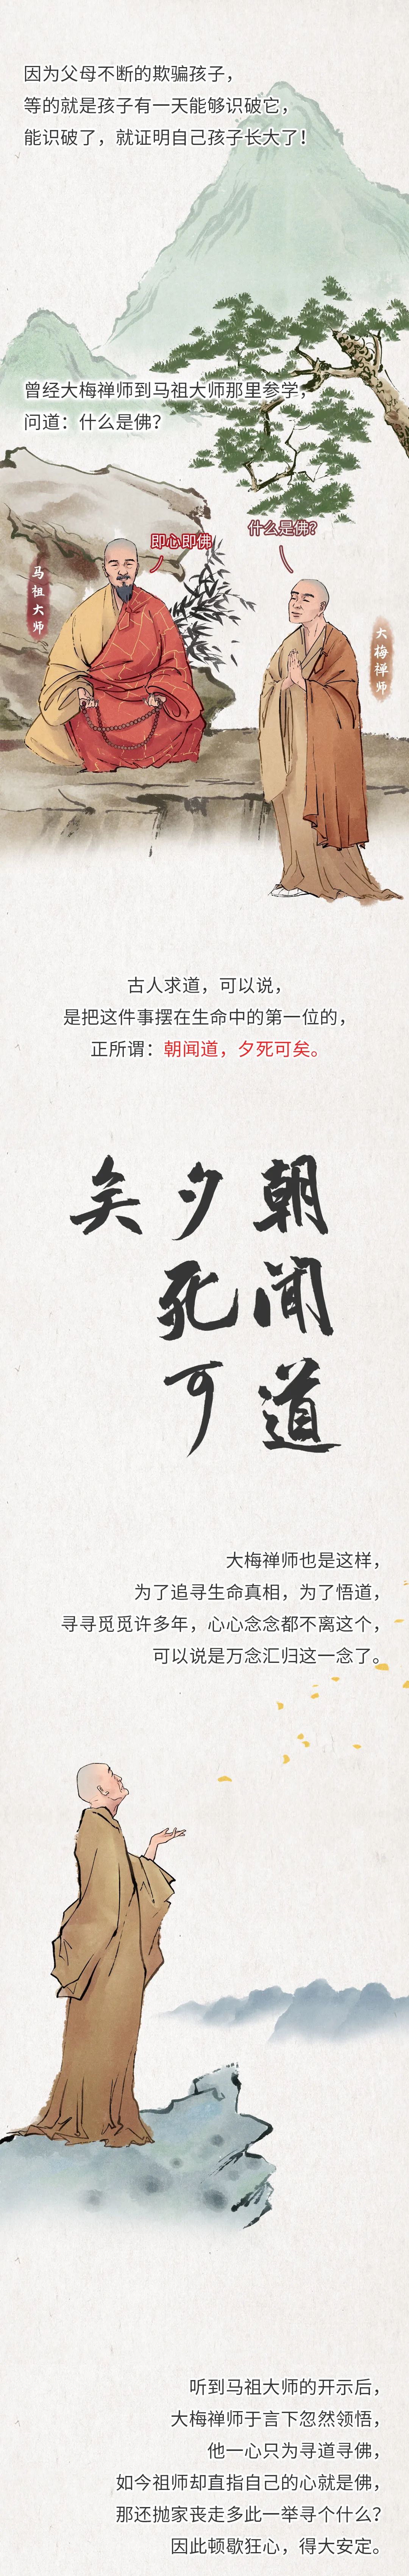 因为父母不断的欺骗孩子，
等的就是孩子有一天能够识破它，
能识破了，就证明自己孩子长大了！
曾经大梅禅师到马祖大师那里参学，
问道：什么是佛？
什么是佛？
即心即佛
马祖大师
大梅禅师
古人求道，可以说，
是把这件事摆在生命中的第一位的，
正所谓：朝闻道，夕死可矣。
朝闻道
夕死可
矣
大梅禅师也是这样，
为了追寻生命真相，为了悟道，
寻寻觅觅许多年，心心念念都不离这个，
可以说是万念汇归这一念了。
听到马祖大师的开示后，
大梅禅师于言下忽然领悟，
他一心只为寻道寻佛，
如今祖师却直指自己的心就是佛，
那还抛家丧走多此一举寻个什么？
因此顿歇狂心，得大安定。